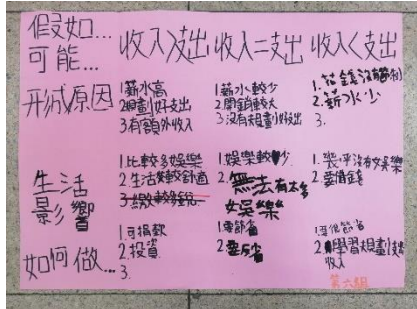 假如...
可能...
收入>支出
收入=支出
收入<支出
形成原因
1.薪水高
2.規劃好支出
3.有額外收入
1.薪水較少
2.開銷較大
3.沒有規劃好支出
1.花錢沒有節制
2.薪水少
3.
生活
影響
1.比較多娛樂
2.生活較舒適
1.娛樂較少
2.無法有太多
娛樂
1.幾乎沒有娛樂
2.要借錢
如何做...
1.可捐款
2.投資
3.
1.要節省
2.要反省
1.要很節省
2.學習規劃支出
收入
第六組